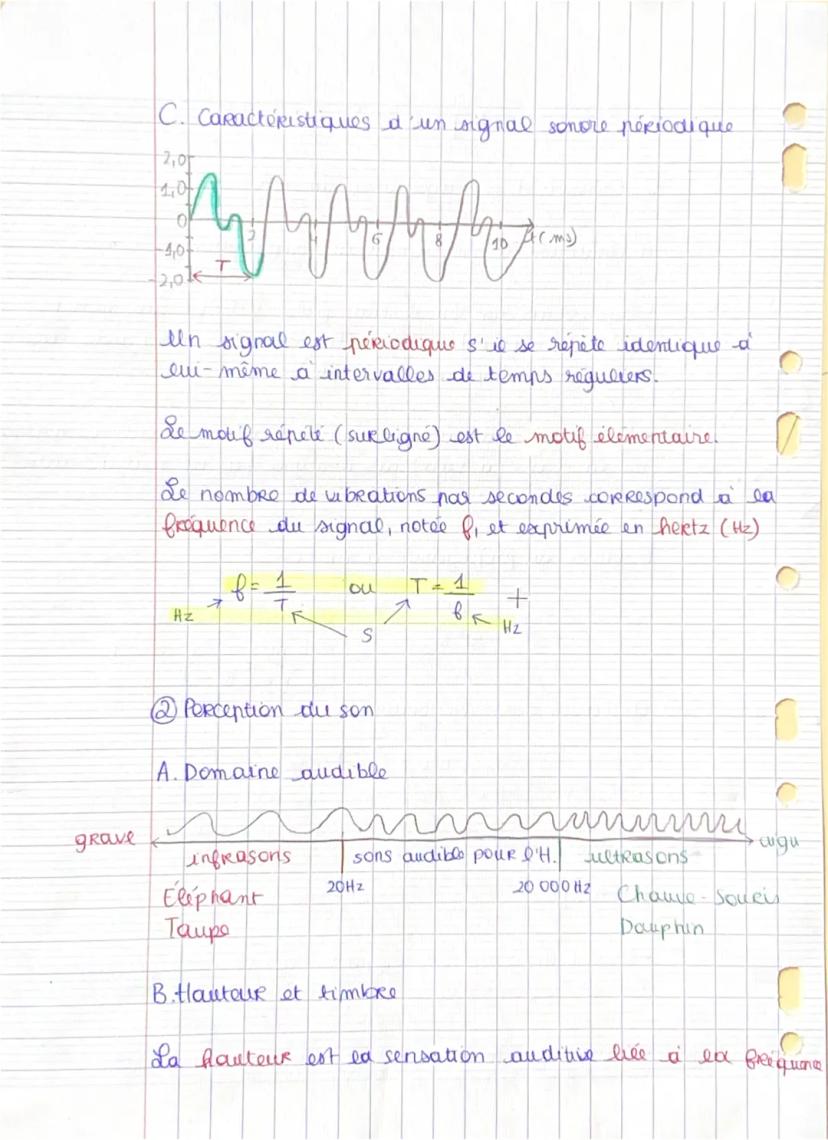 C. Caractéristiques d'un signal sonore périodique
2,0
1,0
0
-1,0
-2,0
T
2
4
6
8
10
t(ms)
Un signal est périodique s'il se répète identique à
lui-même à intervalles de temps réguliers.
Le motif répété (surligné) est le motif élémentaire.
Le nombre de vibrations par secondes correspond à la
fréquence du signal, notée f, et exprimée en hertz (Hz)
f = 1/T ou T = 1/f +
Hz S Hz
② Perception du son
A. Domaine audible
grave aigu
infrasons sons audible pour l'H. ultrasons
20Hz 20 000Hz
Éléphant Chauve-Souris
Taupe Dauphin
B. Hauteur et timbre
La hauteur est la sensation auditive liée à la fréquence